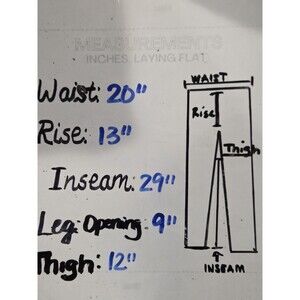 MEASUREMENTS
INCHES, LAYING FLAT
Waist: 20"
Rise: 13"
Inseam: 29"
Leg Opening: 9"
Thigh: 12"
WAIST
Rise
Thigh
INSEAM